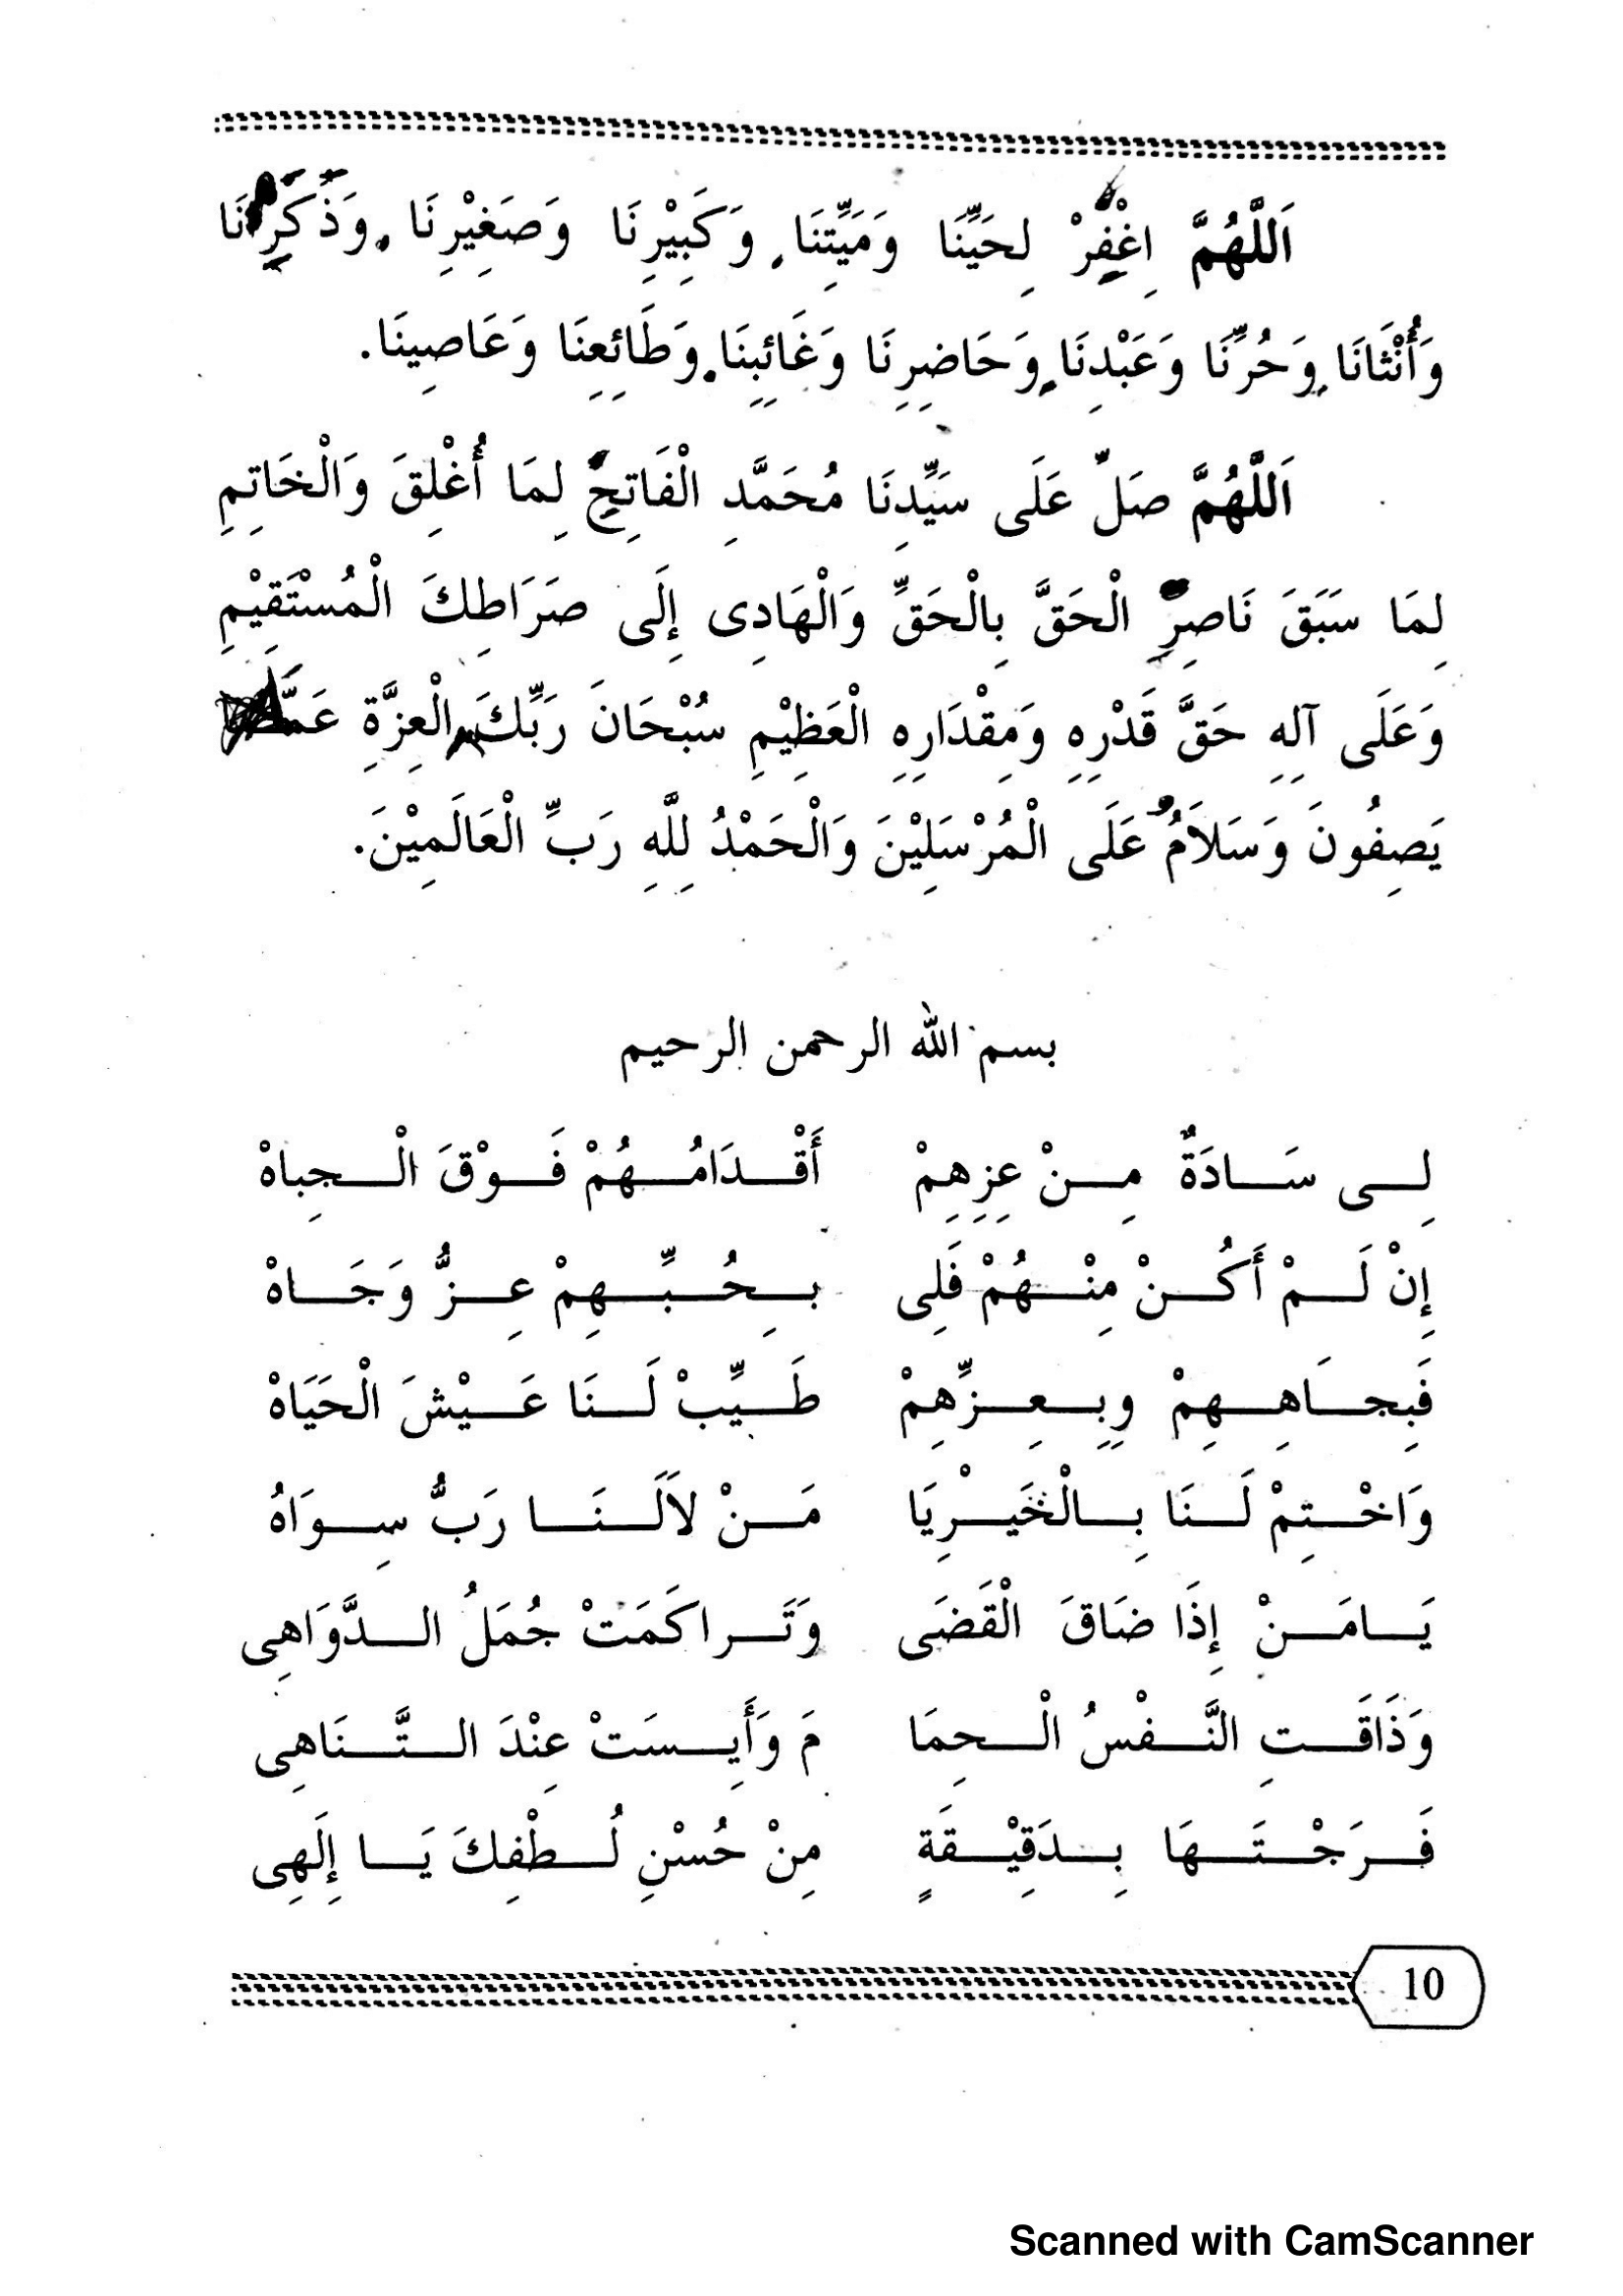 اَللَّهُمَّ اِغْفِرْ لِحَيِّنَا وَمَيِّتِنَا وَكَبِيْرِنَا وَصَغِيْرِنَا وَذَكَرِنَا
وَأُنْثَانَا وَحُرِّنَا وَعَبْدِنَا وَحَاضِرِنَا وَغَائِبِنَا وَطَائِعِنَا وَعَاصِينَا.
اَللَّهُمَّ صَلِّ عَلَى سَيِّدِنَا مُحَمَّدِ الْفَاتِحِ لِمَا أُغْلِقَ وَالْخَاتِمِ
لِمَا سَبَقَ نَاصِرِ الْحَقَّ بِالْحَقِّ وَالْهَادِى إِلَى صَرَاطِكَ الْمُسْتَقِيْمِ
وَعَلَى آلِهِ حَقَّ قَدْرِهِ وَمِقْدَارِهِ الْعَظِيْمِ سُبْحَانَ رَبِّكَ الْعِزَّةِ عَمَّا
يَصِفُونَ وَسَلاَمٌ عَلَى الْمُرْسَلِيْنَ وَالْحَمْدُ لِلَّهِ رَبِّ الْعَالَمِيْنَ.
بسم الله الرحمن الرحيم
لِى سَادَةٌ مِنْ عِزِهِمْ أَقْدَامُهُمْ فَوْقَ الْجِباهْ
إِنْ لَمْ أَكُنْ مِنْهُمْ فَلِى بِحُبِّهِمْ عِزٌّ وَجَاهْ
فَبِجَاهِهِمْ وِبِعِزِّهِمْ طَيِّبْ لَنَا عَيْشَ الْحَيَاهْ
وَاخْتِمْ لَنَا بِالْخَيْرِيَا مَنْ لاَلَنَا رَبٌّ سِوَاهُ
يَامَنْ إِذَا ضَاقَ الْقَضَى وَتَراكَمَتْ جُمَلُ الدَّوَاهِى
وَذَاقَتِ النَّفْسُ الْحِمَا مَ وَأَيِسَتْ عِنْدَ التَّنَاهِى
فَرَجْتَهَا بِدَقِيْقَةٍ مِنْ حُسْنِ لُطْفِكَ يَا إِلَهِى
10
Scanned with CamScanner